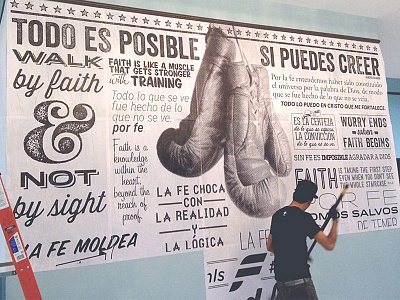 TODO ES POSIBLE
SI PUEDES CREER
WALK
by faith
&
NOT
by sight
LA FE MOLDEA
FAITH IS LIKE A MUSCLE
THAT GETS STRONGER
with TRAINING
Todo lo que se ve
fue hecho de lo
que no se ve,
por fe
Faith is a
knowledge
within the
heart,
beyond the
reach of
proof.
LA FE CHOCA
CON
LA REALIDAD
Y
LA LÓGICA
Por la fe entendemos haber sido constituido
el universo por la palabra de Dios, de modo
que se fue hecho de lo que no se veía.
TODO LO PUEDO EN CRISTO QUE ME FORTALECE.
ES LA CERTEZA
de lo que se espera,
LA CONVICCIÓN
de lo que no se ve.
WORRY ENDS
when
FAITH BEGINS
SIN FE ES IMPOSIBLE AGRADAR A DIOS
FAITH
IS TAKING THE FIRST STEP
EVEN WHEN YOU DON'T SEE
THE WHOLE STAIRCASE
POR FE
SOMOS SALVOS
DE TEMER